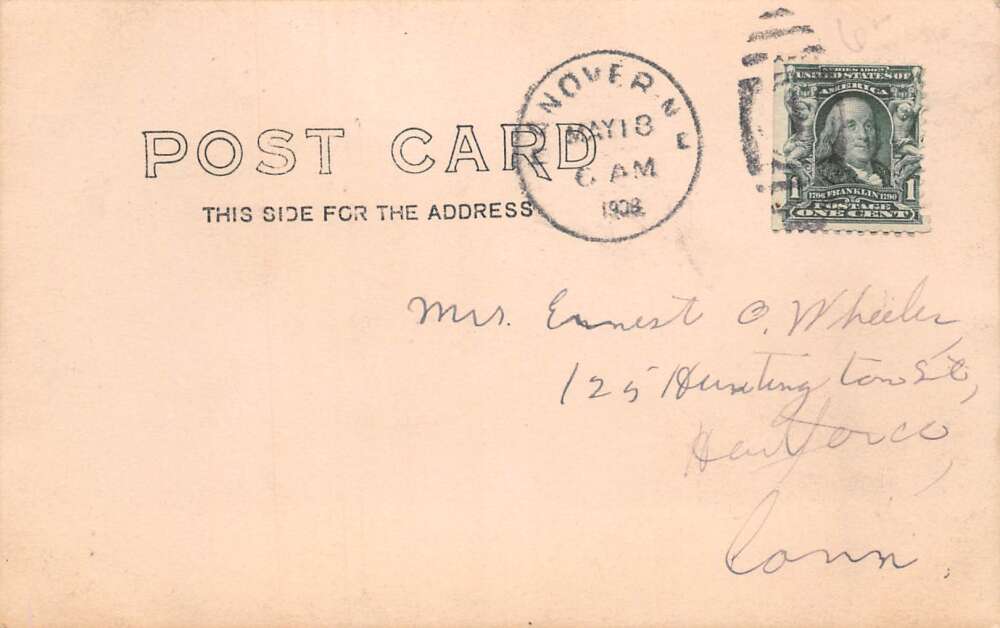 POST CARD
THIS SIDE FOR THE ADDRESS
HANOVER. N
MAY 18
6 AM
1908
SERIES 1902
UNITED STATES OF
AMERICA
1 1
1706 FRANKLIN 1790
POSTAGE
ONE CENT
Mrs. Ernest O. Wheeler,
125 Huntington St,
Hartford,
Conn.